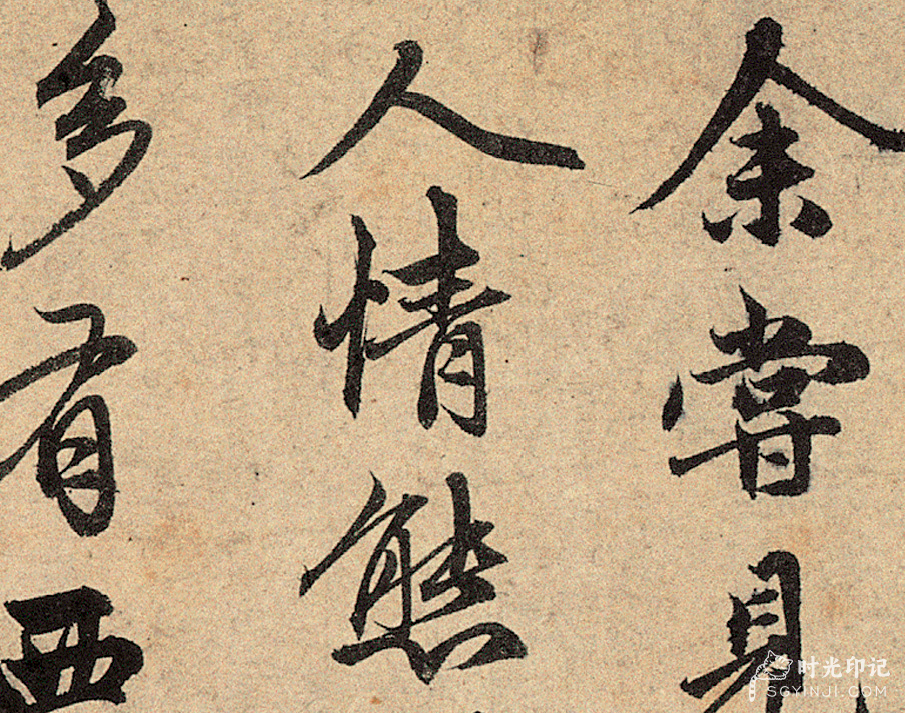 余嘗見
人情態
多有西
时光印记
SGYINJI.COM